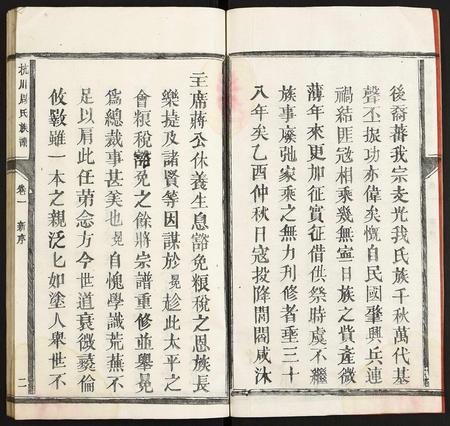 後裔蕃我宗支光我氏族千秋萬代基
聲丕振功亦偉矣慨自民國肇興兵連
禍結匪寇相乘幾無寧日族之貲產微
薄年來更加征實征借供祭時虞不繼
族事廢弛家乘之無力刋修者垂三十
八年矣乙酉仲秋日寇投降閭閻咸沐
主席蔣公休養生息豁免粮稅之恩族長
樂揵及諸賢等因謀於晃趁此太平之
會粮稅豁免之餘將宗譜重修並舉晃
爲總裁事甚美也晃自愧學識荒蕪不
足以肩此任苐念方今世道衰微彛倫
攸斁雖一本之親泛匕如塗人舉世不
杭川周氏族譜
卷一
新序
二